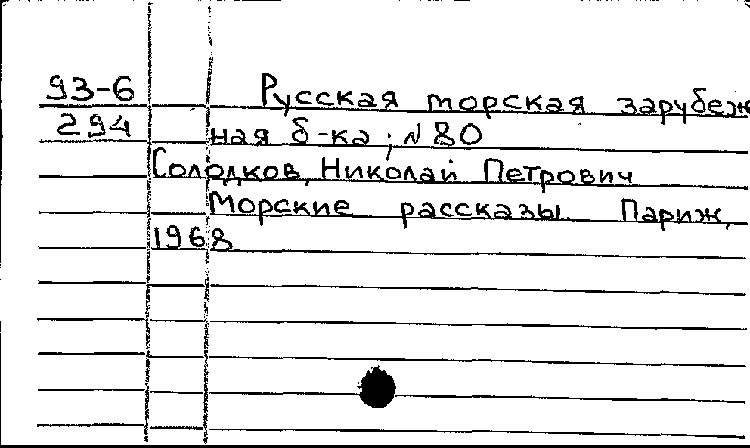 93-6
294
Русская морская зарубеж
ная б-ка; N 80
Солодков, Николай Петрович
Морские рассказы. Париж,
1968